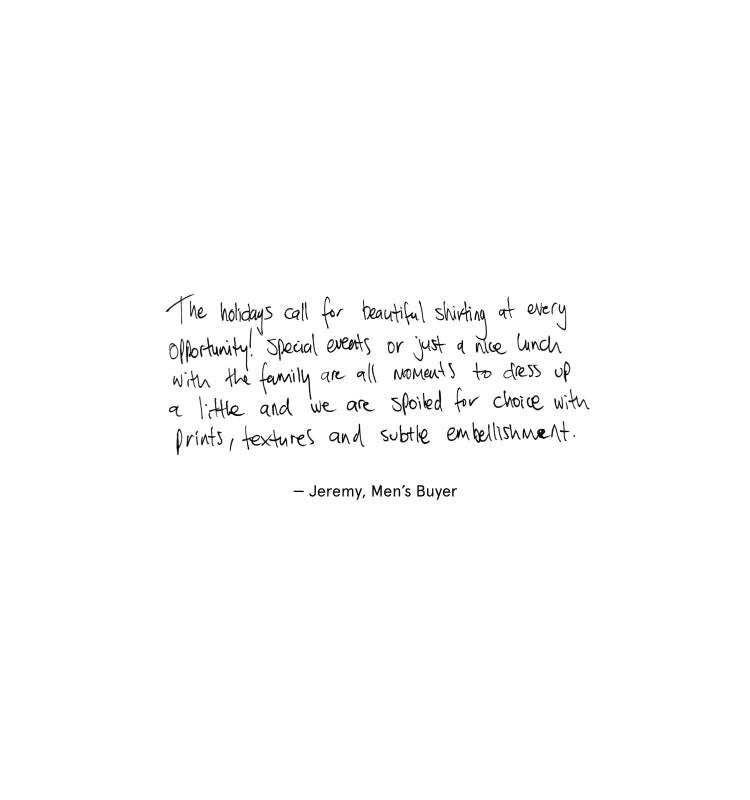 The holidays call for beautiful shirting at every
opportunity! Special events or just a nice lunch
with the family are all moments to dress up
a little and we are spoiled for choice with
prints, textures and subtle embellishment.
— Jeremy, Men's Buyer